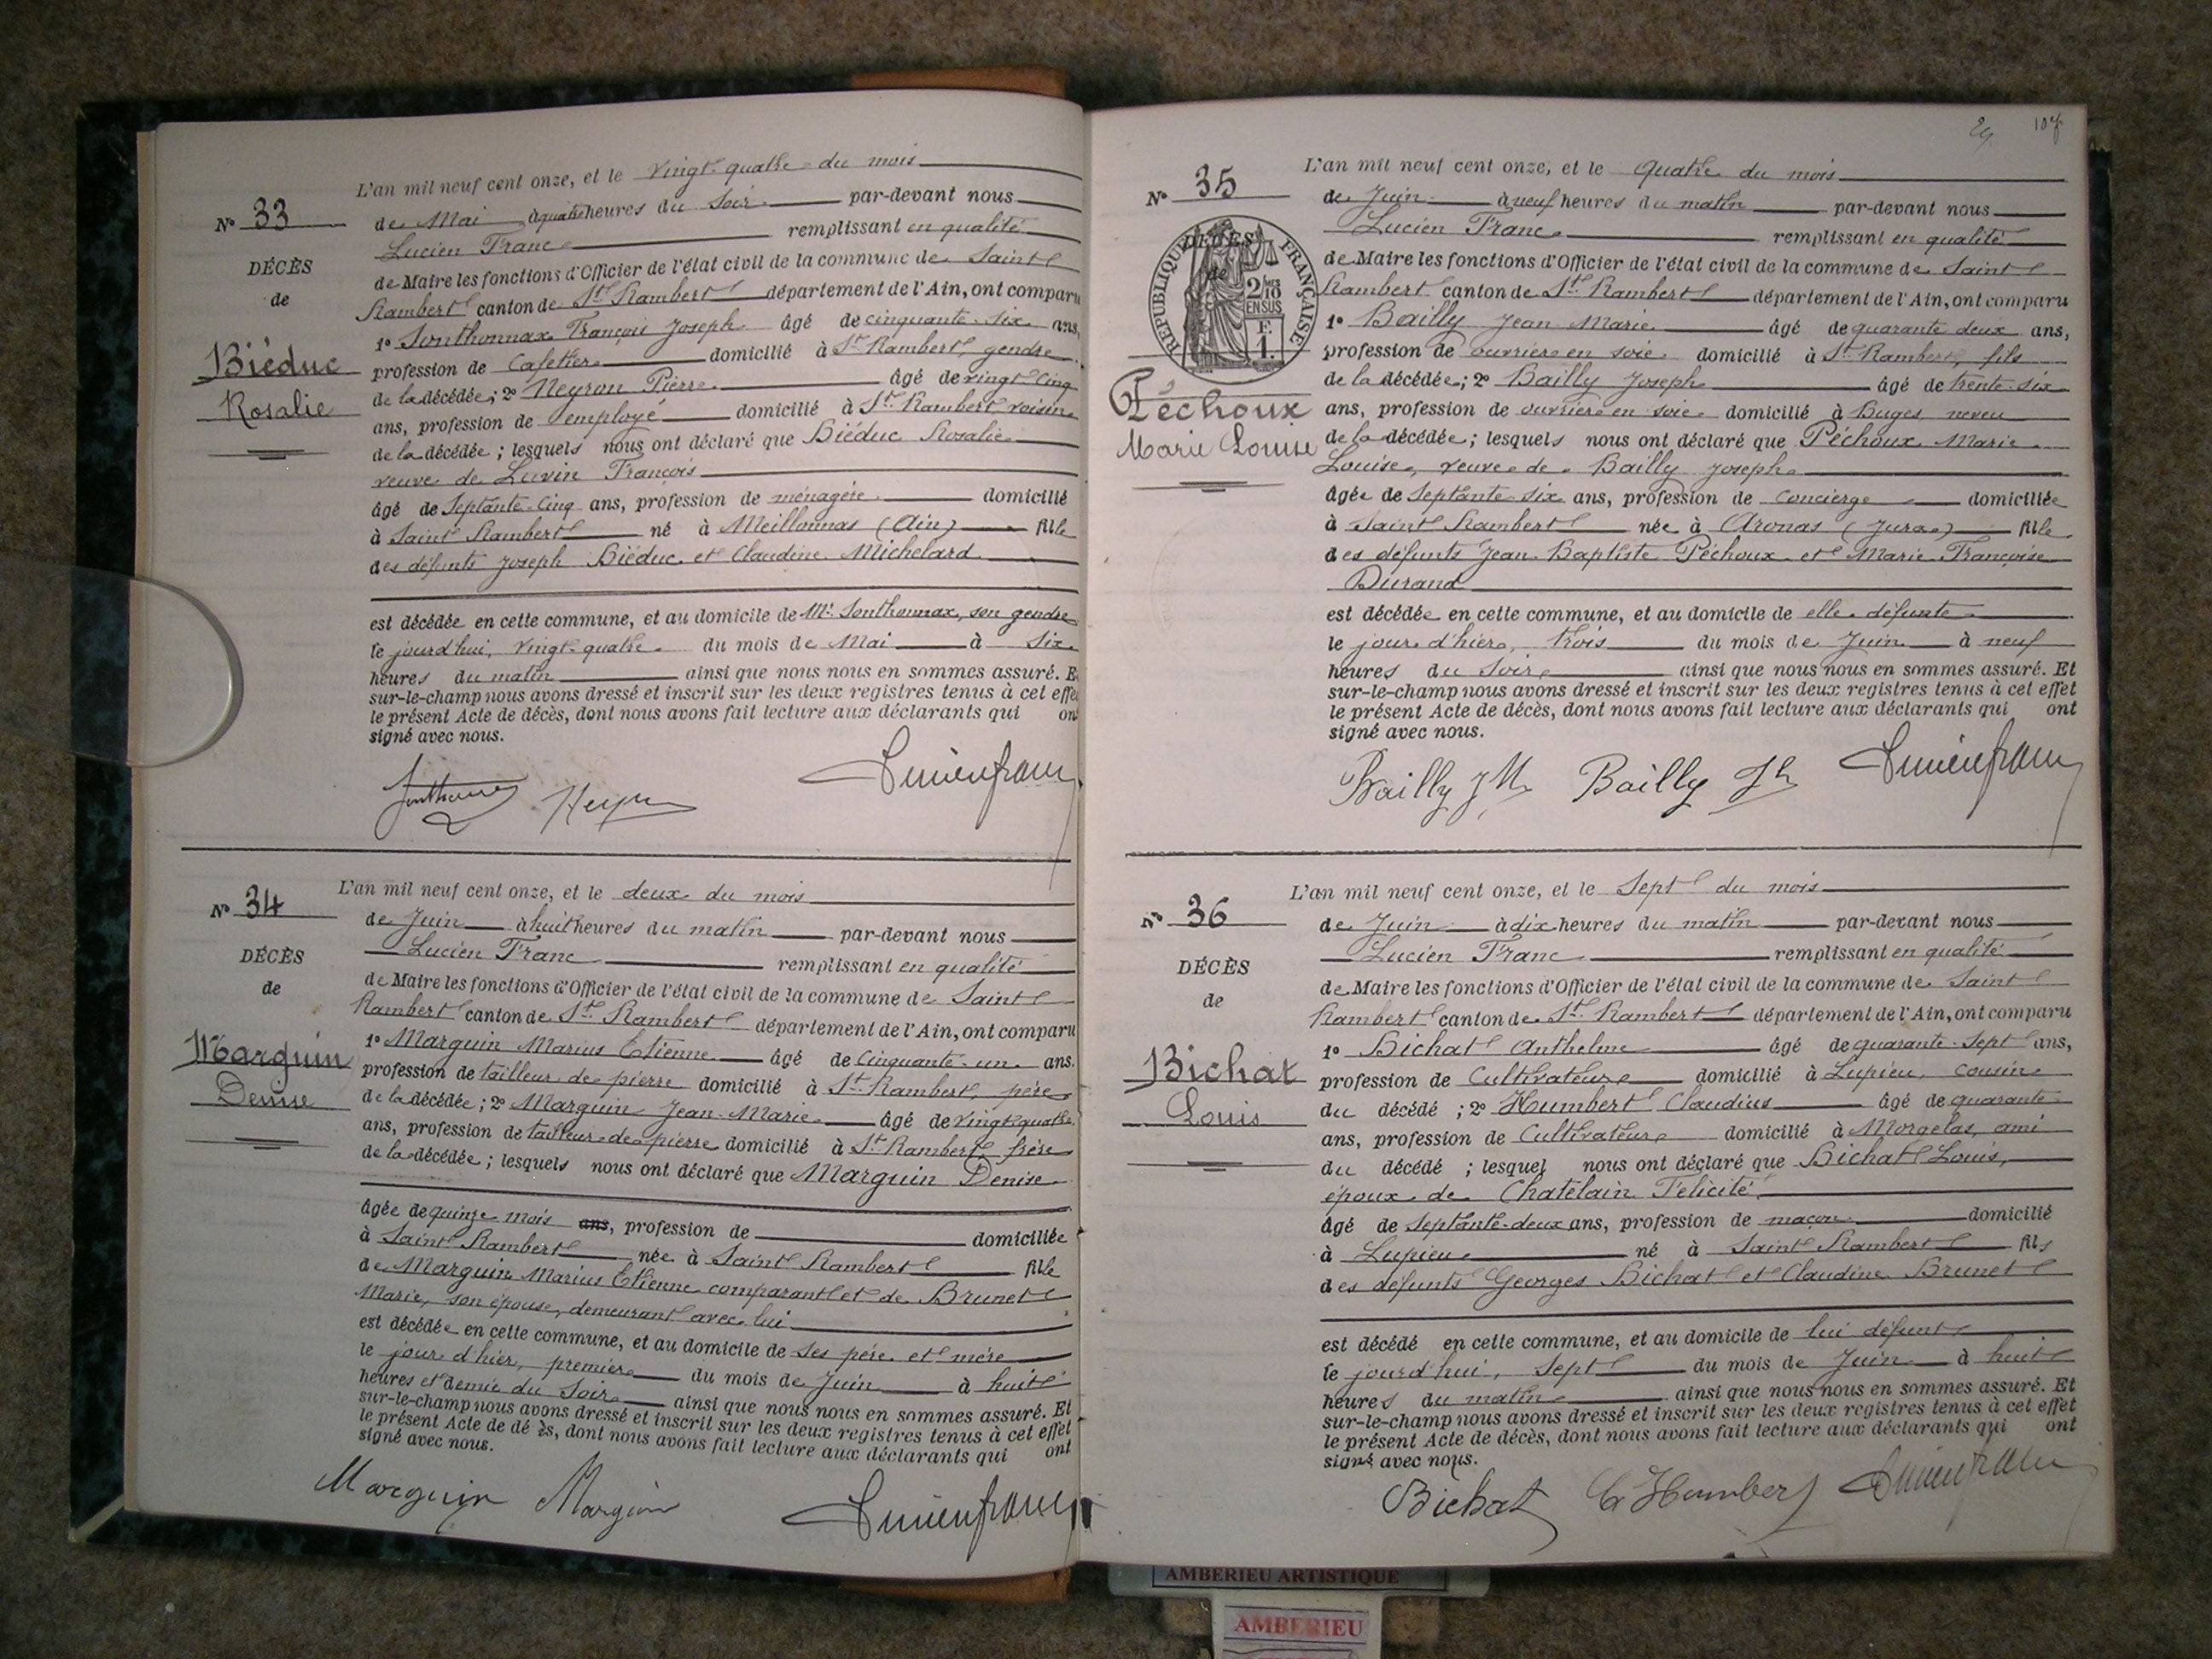 L'an mil neuf cent onze, et le vingt-quatre du mois
N° 33
de Mai à quatre heures du Soir par-devant nous
Lucien Franc remplissant en qualité
DÉCÈS
de Maire les fonctions d'Officier de l'état civil de la commune de Saint
de
Rambert canton de St Rambert département de l'Ain, ont comparu
1° Sonthonnax François Joseph âgé de cinquante-six ans,
Biéduc
profession de Cafetier domicilié à St Rambert, gendre
Rosalie
de la décédée; 2° Neyron Pierre âgé de vingt-cinq
ans, profession de employé domicilié à St Rambert voisin
de la décédée; lesquels nous ont déclaré que Biéduc Rosalie
veuve de Luvin François
âgé de Septante-Cinq ans, profession de ménagère domicilié
à Saint Rambert né à Meillonnas (Ain) fille
des défunts Joseph Biéduc et Claudine Michelard
est décédée en cette commune, et au domicile de Mr Sonthonnax, son gendre
le jourd'hui, vingt-quatre du mois de Mai à Six
heures du matin ainsi que nous nous en sommes assuré. E
sur-le-champ nous avons dressé et inscrit sur les deux registres tenus à cet effe
le présent Acte de décès, dont nous avons fait lecture aux déclarants qui ont
signé avec nous.
L'an mil neuf cent onze, et le deux du mois
N° 34
de Juin à huit heures du matin par-devant nous
DÉCÈS
Lucien Franc remplissant en qualité
de
de Maire les fonctions d'Officier de l'état civil de la commune de Saint
Rambert canton de St Rambert département de l'Ain, ont comparu
Marguin
1° Marguin Marius Etienne âgé de Cinquante-un ans.
Denise
profession de tailleur de pierre domicilié à St Rambert, père
de la décédée; 2° Marguin Jean-Marie âgé de vingt quatre
ans, profession de tailleur de pierre domicilié à St Rambert frère
de la décédée; lesquels nous ont déclaré que Marguin Denise
âgée de quinze mois ans, profession de domiciliée
à Saint Rambert née à Saint Rambert fille
de Marguin Marius Etienne comparant et de Brunet
Marie, son épouse, demeurant avec lui
est décédée en cette commune, et au domicile de ses père et mère
le jour d'hier, premier du mois de Juin à huit
heures et demie du Soir ainsi que nous nous en sommes assuré. Et
sur-le-champ nous avons dressé et inscrit sur les deux registres tenus à cet effet
le présent Acte de dé ès, dont nous avons fait lecture aux déclarants qui ont
signé avec nous.
Marguin Marguin Lucien franc
29 107
L'an mil neuf cent onze, et le quatre du mois
N° 35
de Juin à neuf heures du matin par-devant nous
DÉCÈS
de
Lucien Franc remplissant en qualité
RÉPUBLIQUE FRANÇAISE
2/10 EN SUS
F. 1.
de Maire les fonctions d'Officier de l'état civil de la commune de Saint
Rambert canton de St Rambert département de l'Ain, ont comparu
1° Bailly Jean Marie âgé de quarante deux ans,
profession de ouvrier en soie domicilié à St Rambert, fils
Péchoux
Marie Louise
de la décédée; 2° Bailly Joseph âgé de trente-six
ans, profession de ouvrier en soie domicilié à Buges, neveu
de la décédée; lesquels nous ont déclaré que Péchoux Marie
Louise, veuve de Bailly Joseph
âgée de Septante-six ans, profession de concierge domiciliée
à Saint Rambert née à Aronas (Jura) fille
des défunts Jean-Baptiste Péchoux et Marie Françoise
Durand
est décédée en cette commune, et au domicile de elle défunte
le jour d'hier, trois du mois de Juin à neuf
heures du Soir ainsi que nous nous en sommes assuré. Et
sur-le-champ nous avons dressé et inscrit sur les deux registres tenus à cet effet
le présent Acte de décès, dont nous avons fait lecture aux déclarants qui ont
signé avec nous.
Bailly JM Bailly Jh Lucien franc
L'an mil neuf cent onze, et le Sept du mois
N° 36
de Juin à dix heures du matin par-devant nous
DÉCÈS
Lucien Franc remplissant en qualité
de
de Maire les fonctions d'Officier de l'état civil de la commune de Saint
Rambert canton de St Rambert département de l'Ain, ont comparu
Bichat
Louis
1° Bichat Anthelme âgé de quarante-Sept ans,
profession de Cultivateur domicilié à Lupieu, cousin
du décédé; 2° Humbert Claudius âgé de quarante
ans, profession de Cultivateur domicilié à Morgelas, ami
du décédé; lesquels nous ont déclaré que Bichat Louis,
époux de Chatelain Félicité
âgé de Septante-deux ans, profession de maçon domicilié
à Lupieu né à Saint Rambert fils
des défunts Georges Bichat et Claudine Brunet
est décédé en cette commune, et au domicile de lui défunt
le jourd'hui, Sept du mois de Juin à huit
heures du matin ainsi que nous nous en sommes assuré. Et
sur-le-champ nous avons dressé et inscrit sur les deux registres tenus à cet effet
le présent Acte de décès, dont nous avons fait lecture aux déclarants qui ont
signé avec nous.
Bichat Cl Humbert Lucien franc
AMBERIEU ARTISTIQUE
AMBERIEU